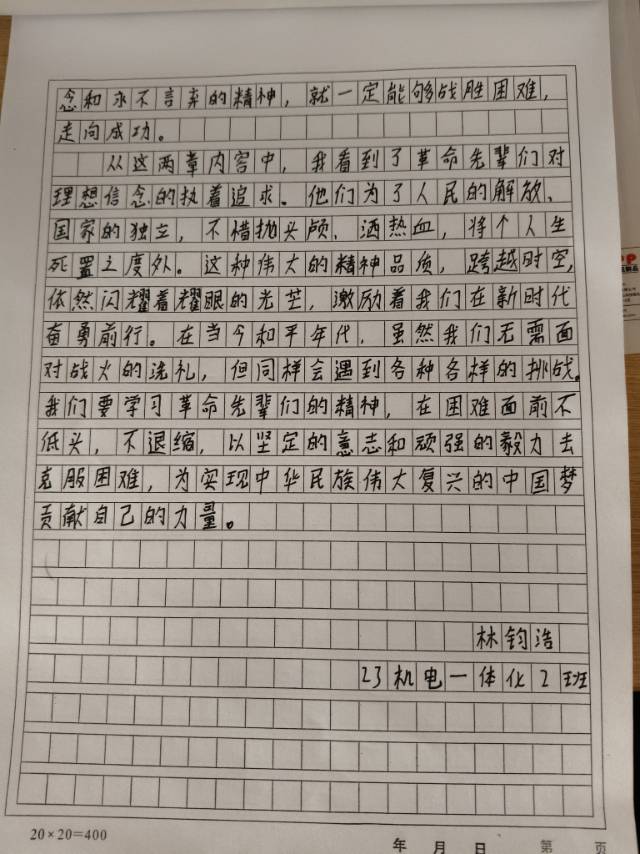 念和永不言弃的精神，就一定能够战胜困难，
走向成功。
从这两章内容中，我看到了革命先辈们对
理想信念的执着追求。他们为了人民的解放、
国家的独立，不惜抛头颅、洒热血，将个人生
死置之度外。这种伟大的精神品质，跨越时空，
依然闪耀着耀眼的光芒，激励着我们在新时代
奋勇前行。在当今和平年代，虽然我们无需面
对战火的洗礼，但同样会遇到各种各样的挑战。
我们要学习革命先辈们的精神，在困难面前不
低头，不退缩，以坚定的意志和顽强的毅力去
克服困难，为实现中华民族伟大复兴的中国梦
贡献自己的力量。
林钧浩
23机电一体化2班
20×20=400
年 月 日 第 页